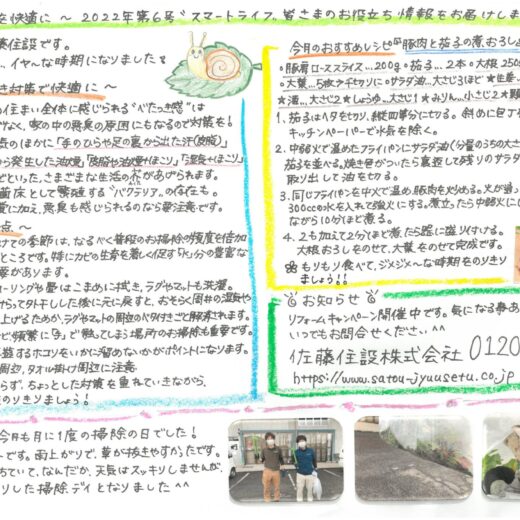 を快適に 〜 2022年第6号 〝スマートライフ〟 皆さまのお役立ち情報をお届けしま
藤住設です。
…、イヤ〜な時期になりました
対策で快適に 〜
住まい全体に感じられる〝べたつき感〟は
でなく、家の中の悪臭の原因にもなるので対策を!
点のほかに「手のひらや足の裏から出た汗(皮脂)」
から発生した油煙」「皮脂や油煙+ほこり」「湿気+ほこり」
といった、さまざまな生活の
菌床として繁殖する〝バクテリア〟の存在も。
加え、悪臭も感じられるのなら要注意です。
点 〜
けての季節は、なるべく普段のお掃除の頻度を倍加
ところです。特にカビの生命を著しく促す「水分」の豊富な
要があります。
ーリングや畳はこまめに拭き、ラグやマットも洗濯。
やって外干しした後に元に戻すと、おそらく周囲の湿気や
上げるためか、ラグやマットの周辺のベタ付きごと解消されます。
ど頻繁に手で触ってしまう場所のお掃除も重要です。
するホコリをいかに溜めないかがポイントになります。
周辺、タオル掛け周辺に注意。
らず、ちょっとした対策を重ねていきながら、
のりきりましょう!
今月も月に1度の掃除の日でした!
です。雨上がりで、草が抜きやすかったです。
ちていて、なんだか、天気はスッキリしませんが、
リした掃除デイとなりました^^
今月のおすすめレシピ 豚肉と茄子の煮おろし
○豚肩ローススライス…200g ○茄子…2本 ○大根…250
○大葉…5枚 千切りに ○サラダ油…大さじ3ほど
★酒…大さじ2 ★しょうゆ…大さじ1 ★みりん…小さじ2
1. 茄子はヘタをせつり、縦四等分に切る。斜めに包丁
キッチンペーパーで水気を除く。
2. 中弱火で温めたフライパンにサラダ油(分量のうちの大さ
茄子を並べる。焼き目がついたら裏返して残りのサラダ
取り出して油を切る。
3. 同じフライパンを中火で温め、豚肉を炒める。火が通
300ccの水を入れて強火にする。煮立ったら中弱火に
ながら10分ほど煮る。
4. 3に2も加えて2分ほど煮たら器に盛り付ける。
大根おろしをのせて、大葉をのせて完成です。
もりもり食べて、ジメジメ〜な時期をのりきり
ましょう!!
お知らせ
リフォームキャンペーン開催中です。気になる事あ
いつでもお問合せください^^
佐藤住設株式会社 0120
https://www.satou-jyuusetu.co.jp